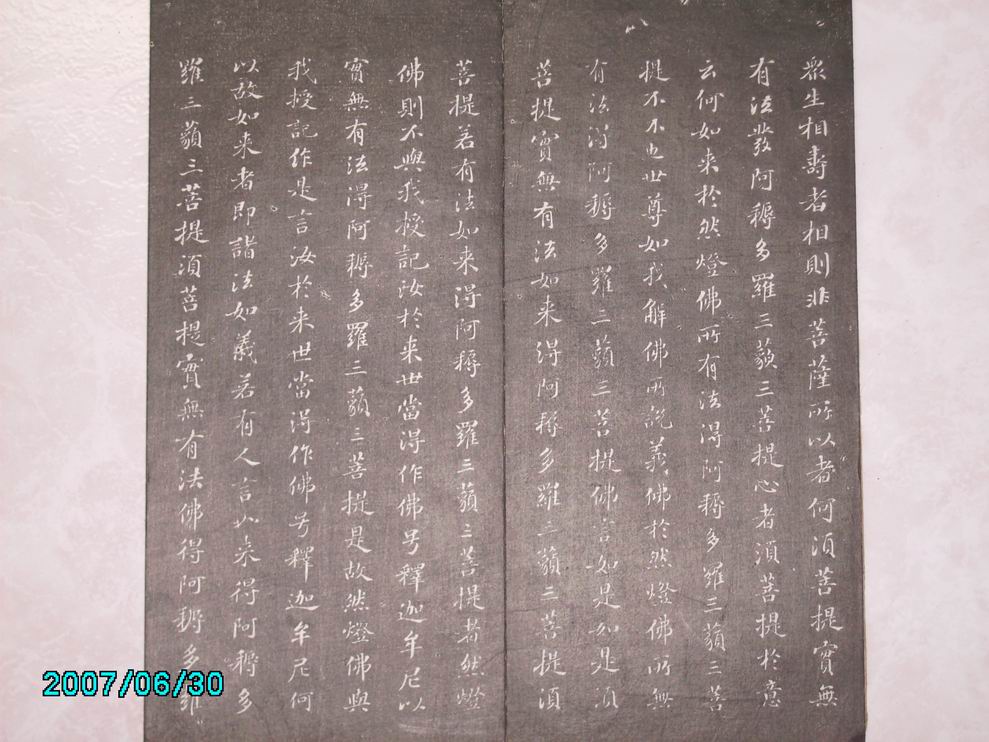 眾生相壽者相則非菩薩所以者何湏菩提實無
有法發阿耨多羅三藐三菩提心者湏菩提於意
云何如来於然燈佛所有法得阿耨多羅三藐三菩
提不不也世尊如我解佛所說義佛於然燈佛所無
有法得阿耨多羅三藐三菩提佛言如是如是湏
菩提實無有法如来得阿耨多羅三藐三菩提湏
菩提若有法如来得阿耨多羅三藐三菩提者然燈
佛則不與我授記汝於来世當得作佛号釋迦牟尼以
實無有法得阿耨多羅三藐三菩提是故然燈佛與
我授記作是言汝於来世當得作佛号釋迦牟尼何
以故如来者即諸法如義若有人言如来得阿耨多
羅三藐三菩提湏菩提實無有法佛得阿耨多羅
2007/06/30